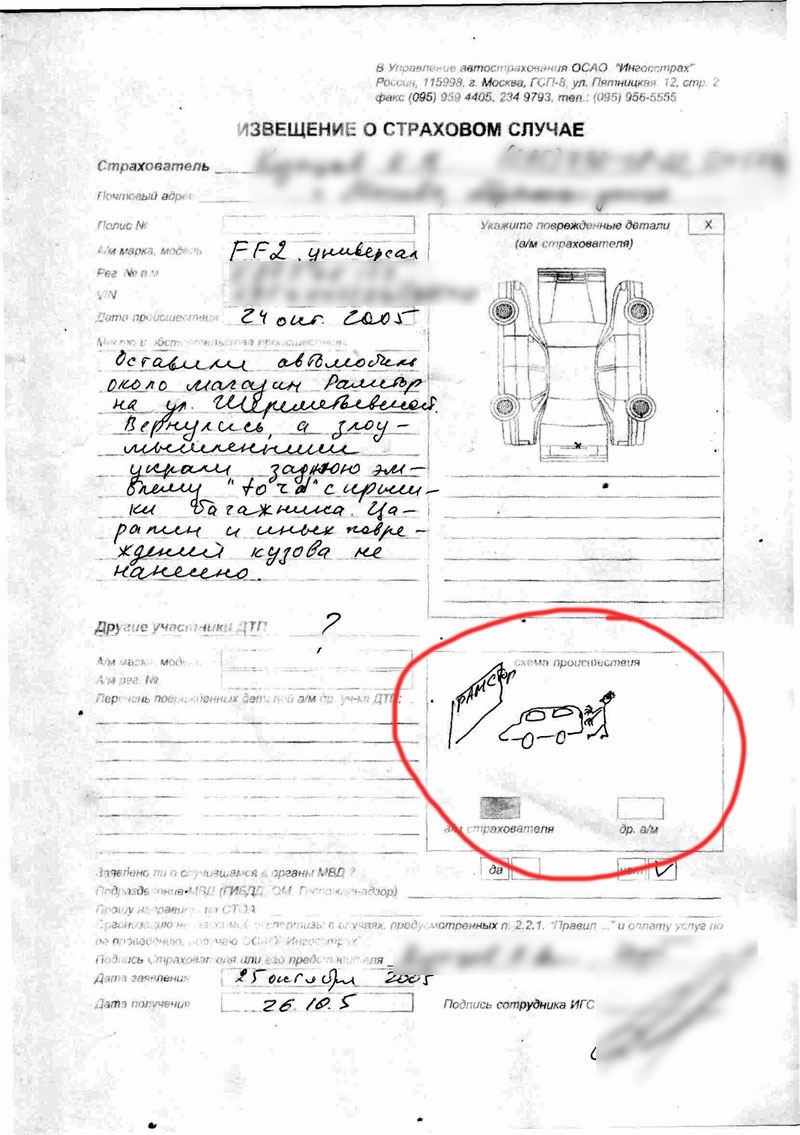 В Управление автострахования ОСАО "Ингосстрах"
Россия, 115998, г. Москва, ГСП-8, ул. Пятницкая, 12, стр. 2
факс (095) 959 4405, 234 9793, тел.: (095) 956-5555
ИЗВЕЩЕНИЕ О СТРАХОВОМ СЛУЧАЕ
Страхователь
Почтовый адрес
Полис №
А/м марка, модель FF2 универсал
Рег № а м
VIN
Дата происшествия 24 окт. 2005
Место и обстоятельства происшествия:
Оставили автомобиль
около магазин Рамстор
на ул. Шереметьевской.
Вернулись, а злоу-
мышленники
украли заднюю эм-
блему с крыш-
ки багажника. Ца-
рапин и иных повре-
ждений кузова не
нанесено.
Укажите поврежденные детали X
(а/м страхователя)
Другие участники ДТП ?
А/м марка, модель
А/м рег. №
Перечень поврежденных деталей а/м др. уч-ка ДТП:
схема происшествия
РАМСТОР
а/м страхователя др. а/м
Заявлено ли о случившемся в органы МВД ? да нет
Подразделение МВД (ГИБДД, ОМ, Госпожнадзор)
Прошу направить на СТОА
Организацию независимой экспертизы в случаях, предусмотренных п. 2.2.1. "Правил ..." и оплату услуг по
ее проведению, поручаю ОСАО "Ингосстрах"
Подпись Страхователя или его представителя
Дата заявления 25 октября 2005
Дата получения 26.10.5 Подпись сотрудника ИГС